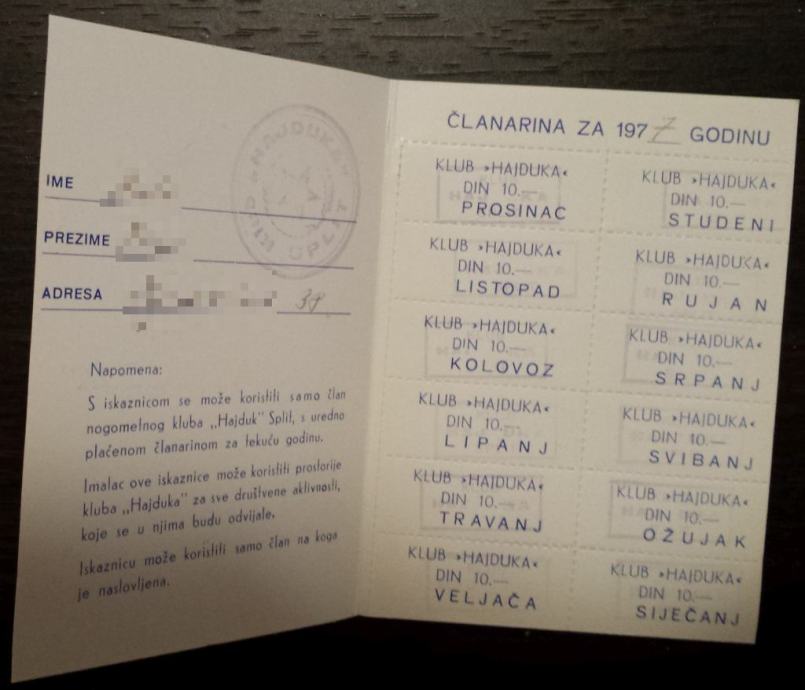 KLUB "HAJDUKA" SPLIT
IME
PREZIME
ADRESA 38
Napomena:
S iskaznicom se može koristiti samo član
nogometnog kluba „Hajduk" Split, s uredno
plaćenom članarinom za tekuću godinu.
Imalac ove iskaznice može koristiti prostorije
kluba „Hajduka" za sve društvene aktivnosti,
koje se u njima budu odvijale.
Iskaznicu može koristiti samo član na koga
je naslovljena.
ČLANARINA ZA 1977 GODINU
KLUB »HAJDUKA«
DIN 10.—
PROSINAC
KLUB »HAJDUKA«
DIN 10.—
STUDENI
KLUB »HAJDUKA«
DIN 10.—
LISTOPAD
KLUB »HAJDUKA«
DIN 10.—
RUJAN
KLUB »HAJDUKA«
DIN 10.—
KOLOVOZ
KLUB »HAJDUKA«
DIN 10.—
SRPANJ
KLUB »HAJDUKA«
DIN 10.—
LIPANJ
KLUB »HAJDUKA«
DIN 10.—
SVIBANJ
KLUB »HAJDUKA«
DIN 10.—
TRAVANJ
KLUB »HAJDUKA«
DIN 10.—
OŽUJAK
KLUB »HAJDUKA«
DIN 10.—
VELJAČA
KLUB »HAJDUKA«
DIN 10.—
SIJEČANJ